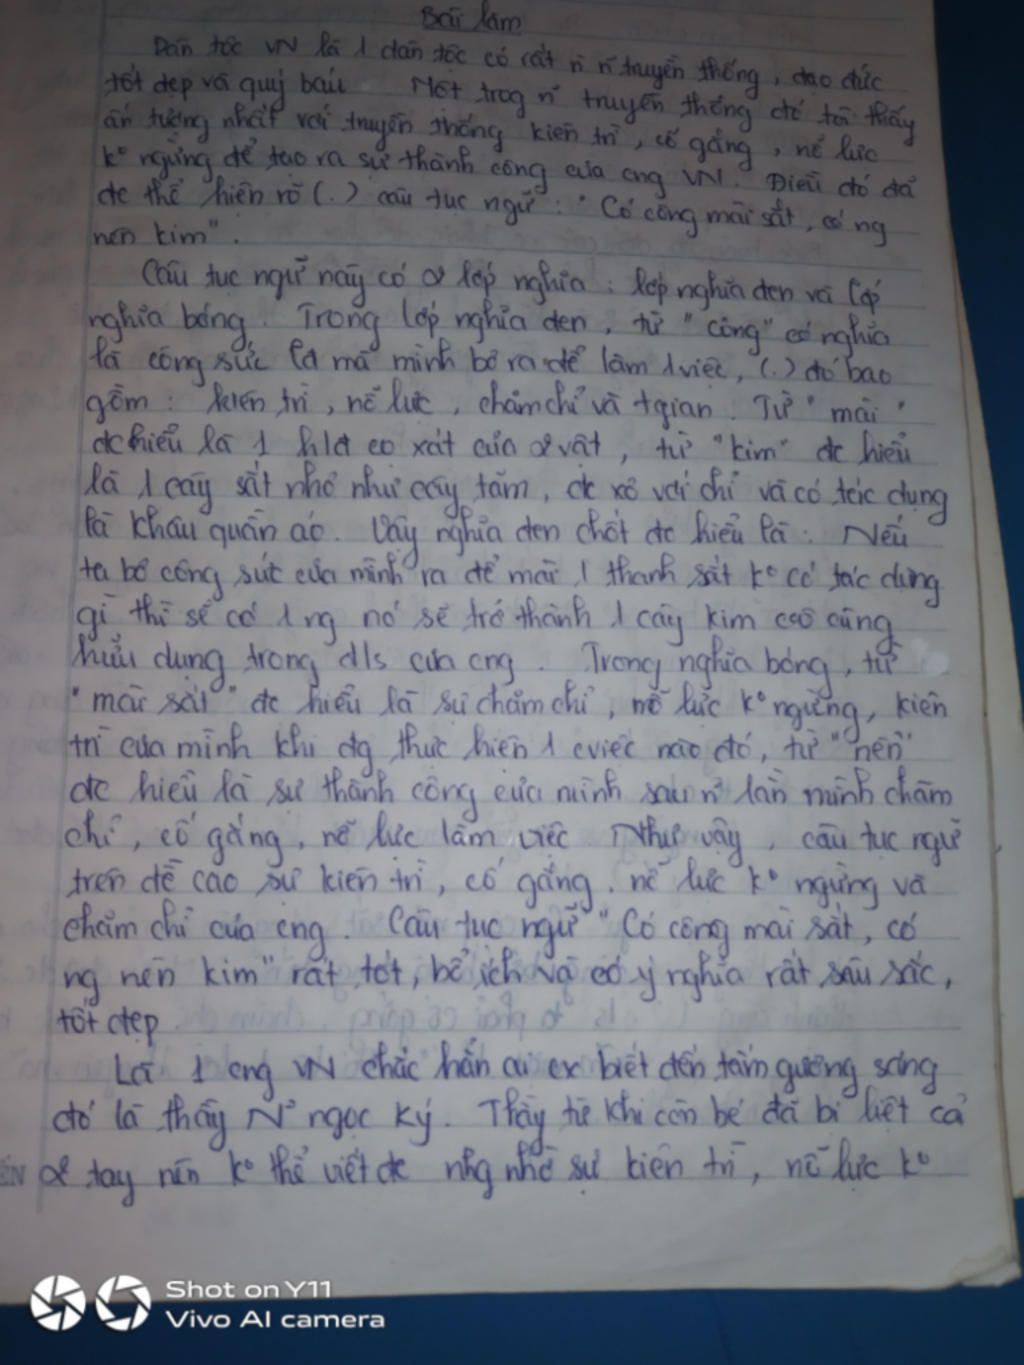 Bài làm
Dân tộc VN là 1 dân tộc có rất n` n~ truyền thống, đạo đức
tốt đẹp và quý báu. Một trog n~ truyền thống đó tôi thấy
ấn tượng nhất với truyền thống kiên trì, cố gắng, nổ lực
k° ngừng để tạo ra sự thành công của cng VN. Điều đó đã
đc thể hiện rõ (.) câu tục ngữ: "Có công mài sắt, có ng
nên kim".
Câu tục ngữ này có 2 lớp nghĩa: lớp nghĩa đen và lớp
nghĩa bóng. Trong lớp nghĩa đen, từ "công" có nghĩa
là công sức lđ mà mình bỏ ra để làm 1 việc, (.) đó bao
gồm: kiên trì, nổ lực, chăm chỉ và tgian. Từ "mài"
đc hiểu là 1 hđ cọ xát của 2 vật, từ "kim" đc hiểu
là 1 cây sắt nhỏ như cây tăm, đc xỏ với chỉ và có tác dụng
là khâu quần áo. Vậy nghĩa đen chốt đc hiểu là: Nếu
ta bỏ công sức của mình ra để mài 1 thanh sắt k° có tác dụng
gì thì sẽ có 1 ng nó sẽ trở thành 1 cây kim vô cùng
hữu dụng trong đ/s của cng. Trong nghĩa bóng, từ
"mài sắt" đc hiểu là sự chăm chỉ, nổ lực k° ngừng, kiên
trì của mình khi đg thực hiện 1 cviệc nào đó, từ "nên"
đc hiểu là sự thành công của mình sau n~ lần mình chăm
chỉ, cố gắng, nổ lực làm việc. Như vậy, câu tục ngữ
trên đề cao sự kiên trì, cố gắng, nổ lực k° ngừng và
chăm chỉ của cng. Câu tục ngữ "Có công mài sắt, có
ng nên kim" rất tốt, bổ ích và có ý nghĩa rất sâu sắc,
tốt đẹp.
Là 1 cng VN chắc hẳn ai cx biết đến tấm gương sáng
đó là thầy N~ ngọc Ký. Thầy từ khi còn bé đã bị liệt cả
2 tay nên k° thể viết đc nhg nhờ sự kiên trì, nổ lực k°
Shot on Y11
Vivo AI camera